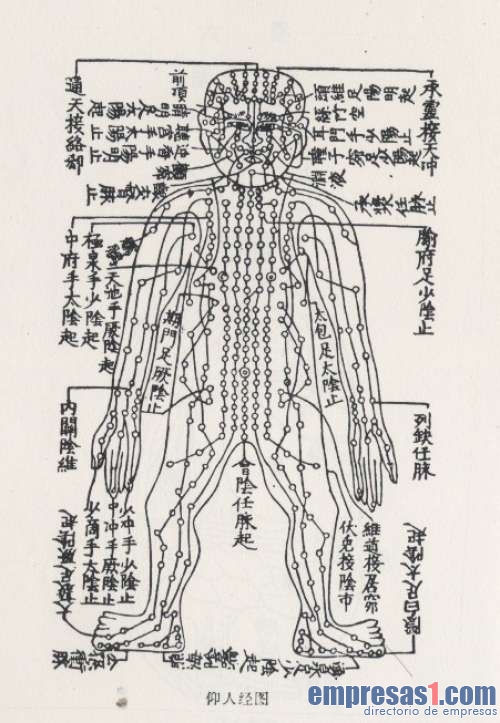 承靈接天沖
頭維足陽明起
絲竹空
耳門手少陽止
瞳子窌足少陽起
承漿任脈止
前頂
睛明足太陽起
聽宮手太陽止
迎香手陽明止
通天接絡郤
督脈止
腧府足少陰止
天池手厥陰起
極泉手少陰起
中府手太陰起
大包足太陰止
期門足厥陰止
列缺任脉
內關陰維
會陰任脉起
維道接居窌
伏免接陰市
少冲手少陰止
中冲手厥陰止
少商手太陰止
隱白足太陰起
足少陰起
仰人经图
empresas1.com
directorio de empresas